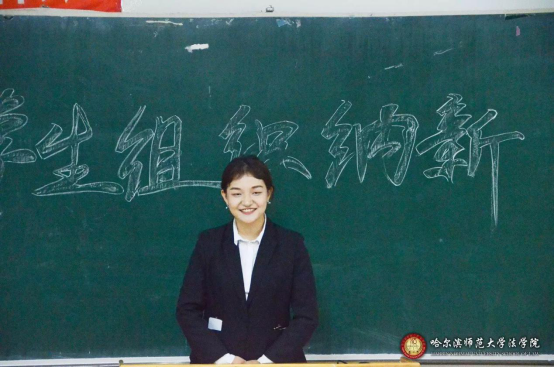 学生组织纳新
哈尔滨师范大学法学院